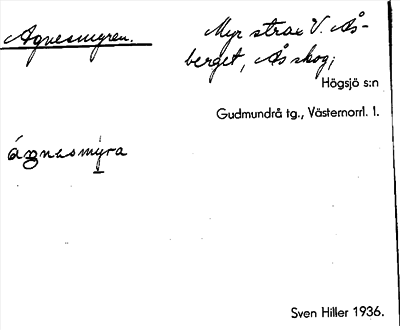 Agnesmyren.
Myr strax V. Ås-
berget, Ås skog;
Högsjö s:n
Gudmundrå tg., Västernorrl. l.
ágnesmyra
Sven Hiller 1936.